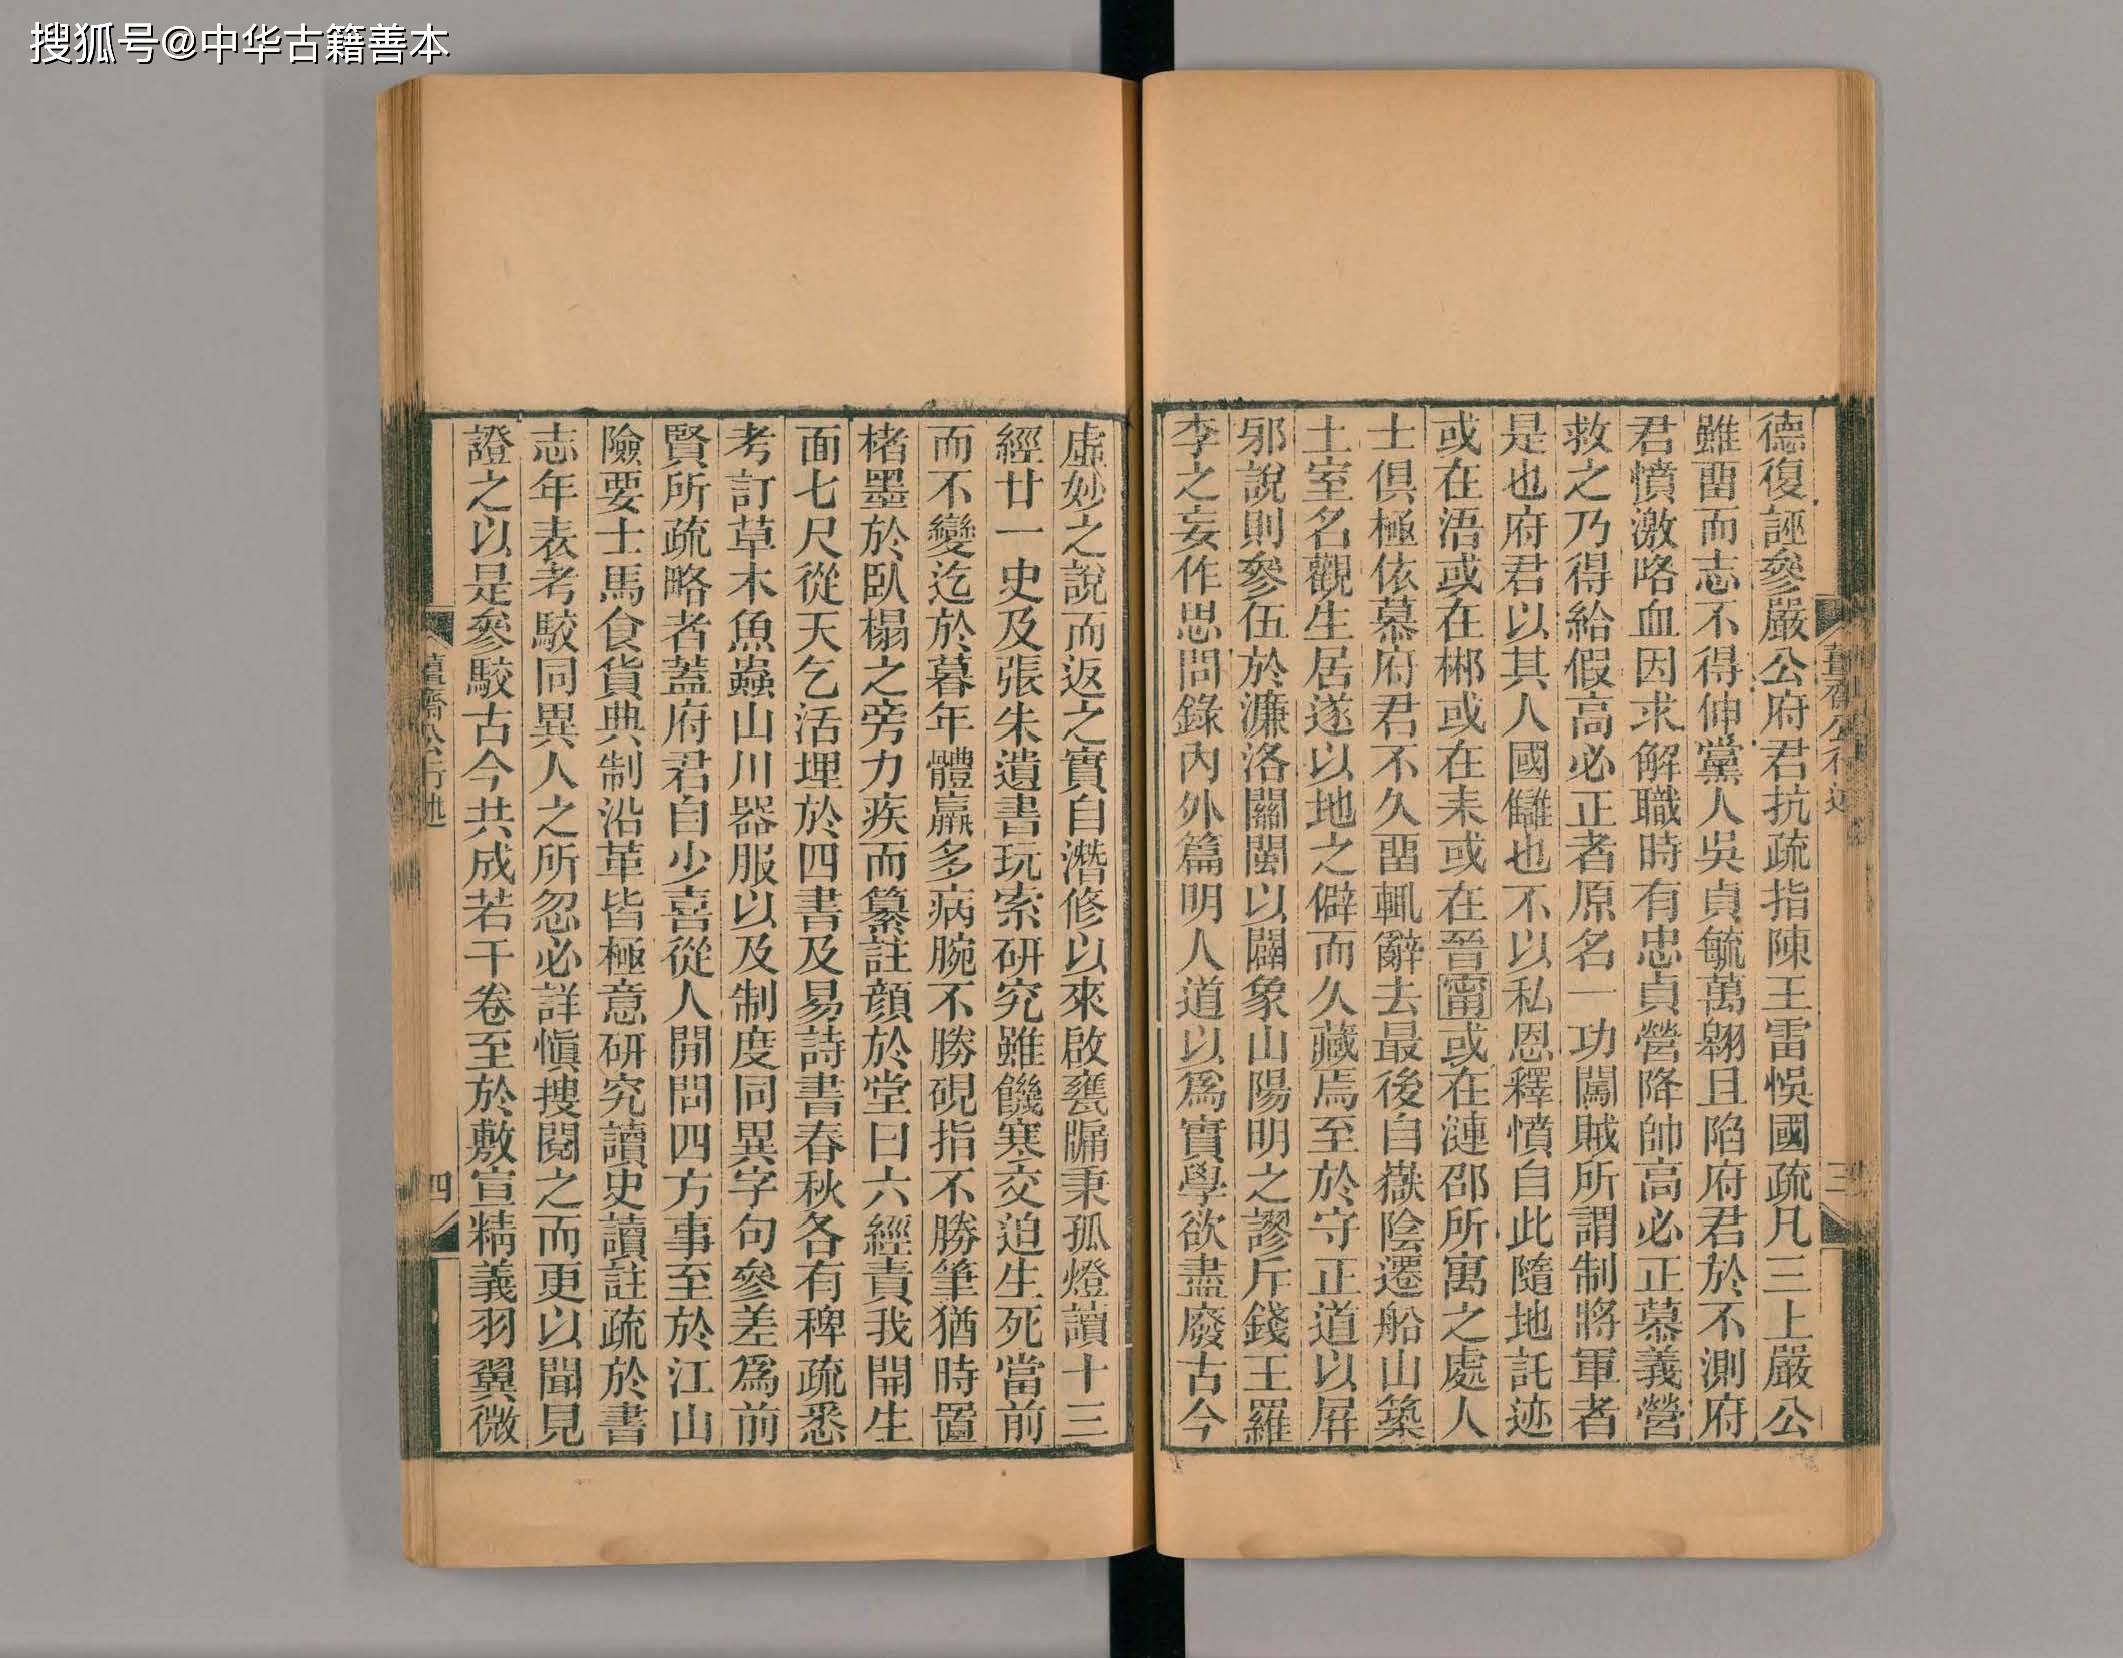 搜狐号@中华古籍善本
德復誣參嚴公府君抗疏指陳王雷悞國疏凡三上嚴公
雖畱而志不得伸黨人吳貞毓萬翱且陷府君於不測府
君憤激咯血因求解職時有忠貞營降帥高必正慕義營
救之乃得給假高必正者原名一功闖賊所謂制將軍者
是也府君以其人國讎也不以私恩釋憤自此隨地託迹
或在浯或在郴或在耒或在晉甯或在漣邵所寓之處人
士俱極依慕府君不久畱輒辭去最後自嶽陰遷船山築
土室名觀生居遂以地之僻而久藏焉至於守正道以屏
邪說則參伍於濂洛關閩以闢象山陽明之謬斥錢王羅
李之妄作思問錄內外篇明人道以爲實學欲盡廢古今
薑齋公行述
三
虛妙之說而返之實自潛修以來啟甕牖秉孤燈讀十三
經廿一史及張朱遺書玩索研究雖饑寒交迫生死當前
而不變迄於暮年體羸多病腕不勝硯指不勝筆猶時置
楮墨於臥榻之旁力疾而纂註顏於堂曰六經責我開生
面七尺從天乞活埋於四書及易詩書春秋各有稗疏悉
考訂草木魚蟲山川器服以及制度同異字句參差爲前
賢所疏略者蓋府君自少喜從人間問四方事至於江山
險要士馬食貨典制沿革皆極意研究讀史讀註疏於書
志年表考駮同異人之所忽必詳愼搜閱之而更以聞見
證之以是參駮古今共成若干卷至於敷宣精義羽翼微
薑齋公行述
四